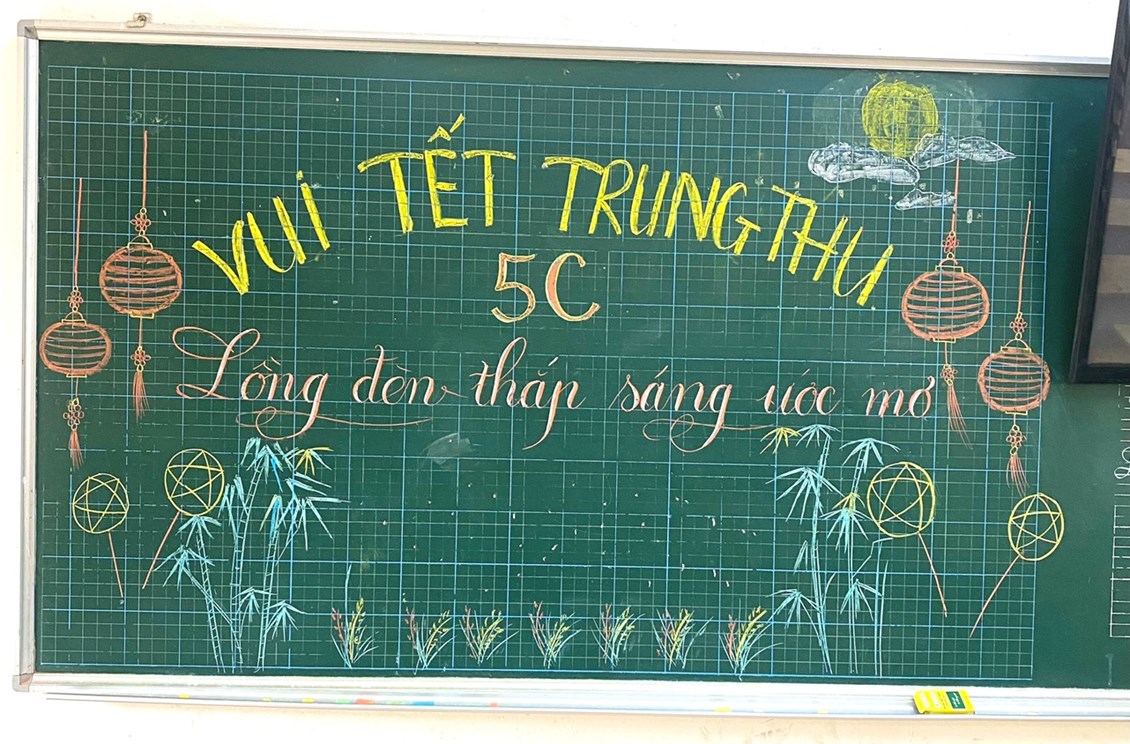 VUI TẾT TRUNG THU
5C
Lồng đèn thắp sáng ước mơ